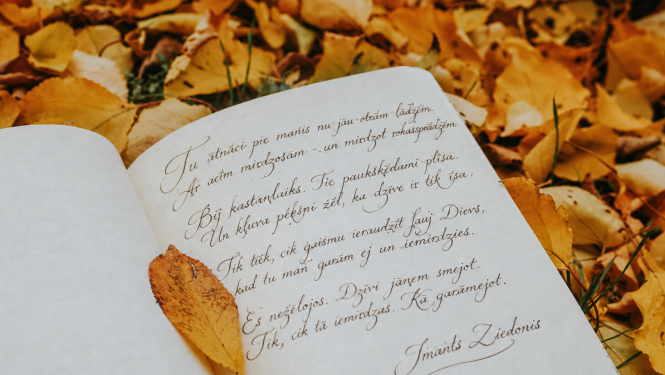 Tu atnāci pie manis nu jau otrām lādzēm.
Ar acīm mirdzošām – un mirdzot rokassprādzēm.
Bij kastaņlaiks. Tie paukšķēdami plīsa.
Un kļuva pēkšņi žēl, ka dzīve ir tik īsa.
Tik tiek, cik gaismu ieraudzīt ļauj Dievs,
kad tu man garām ej un iemirdzies.
Es nežēlojos. Dzīvi jāņem smejot.
Tik, cik tā iemirdzas. Kā garāmejot.
Imants Ziedonis